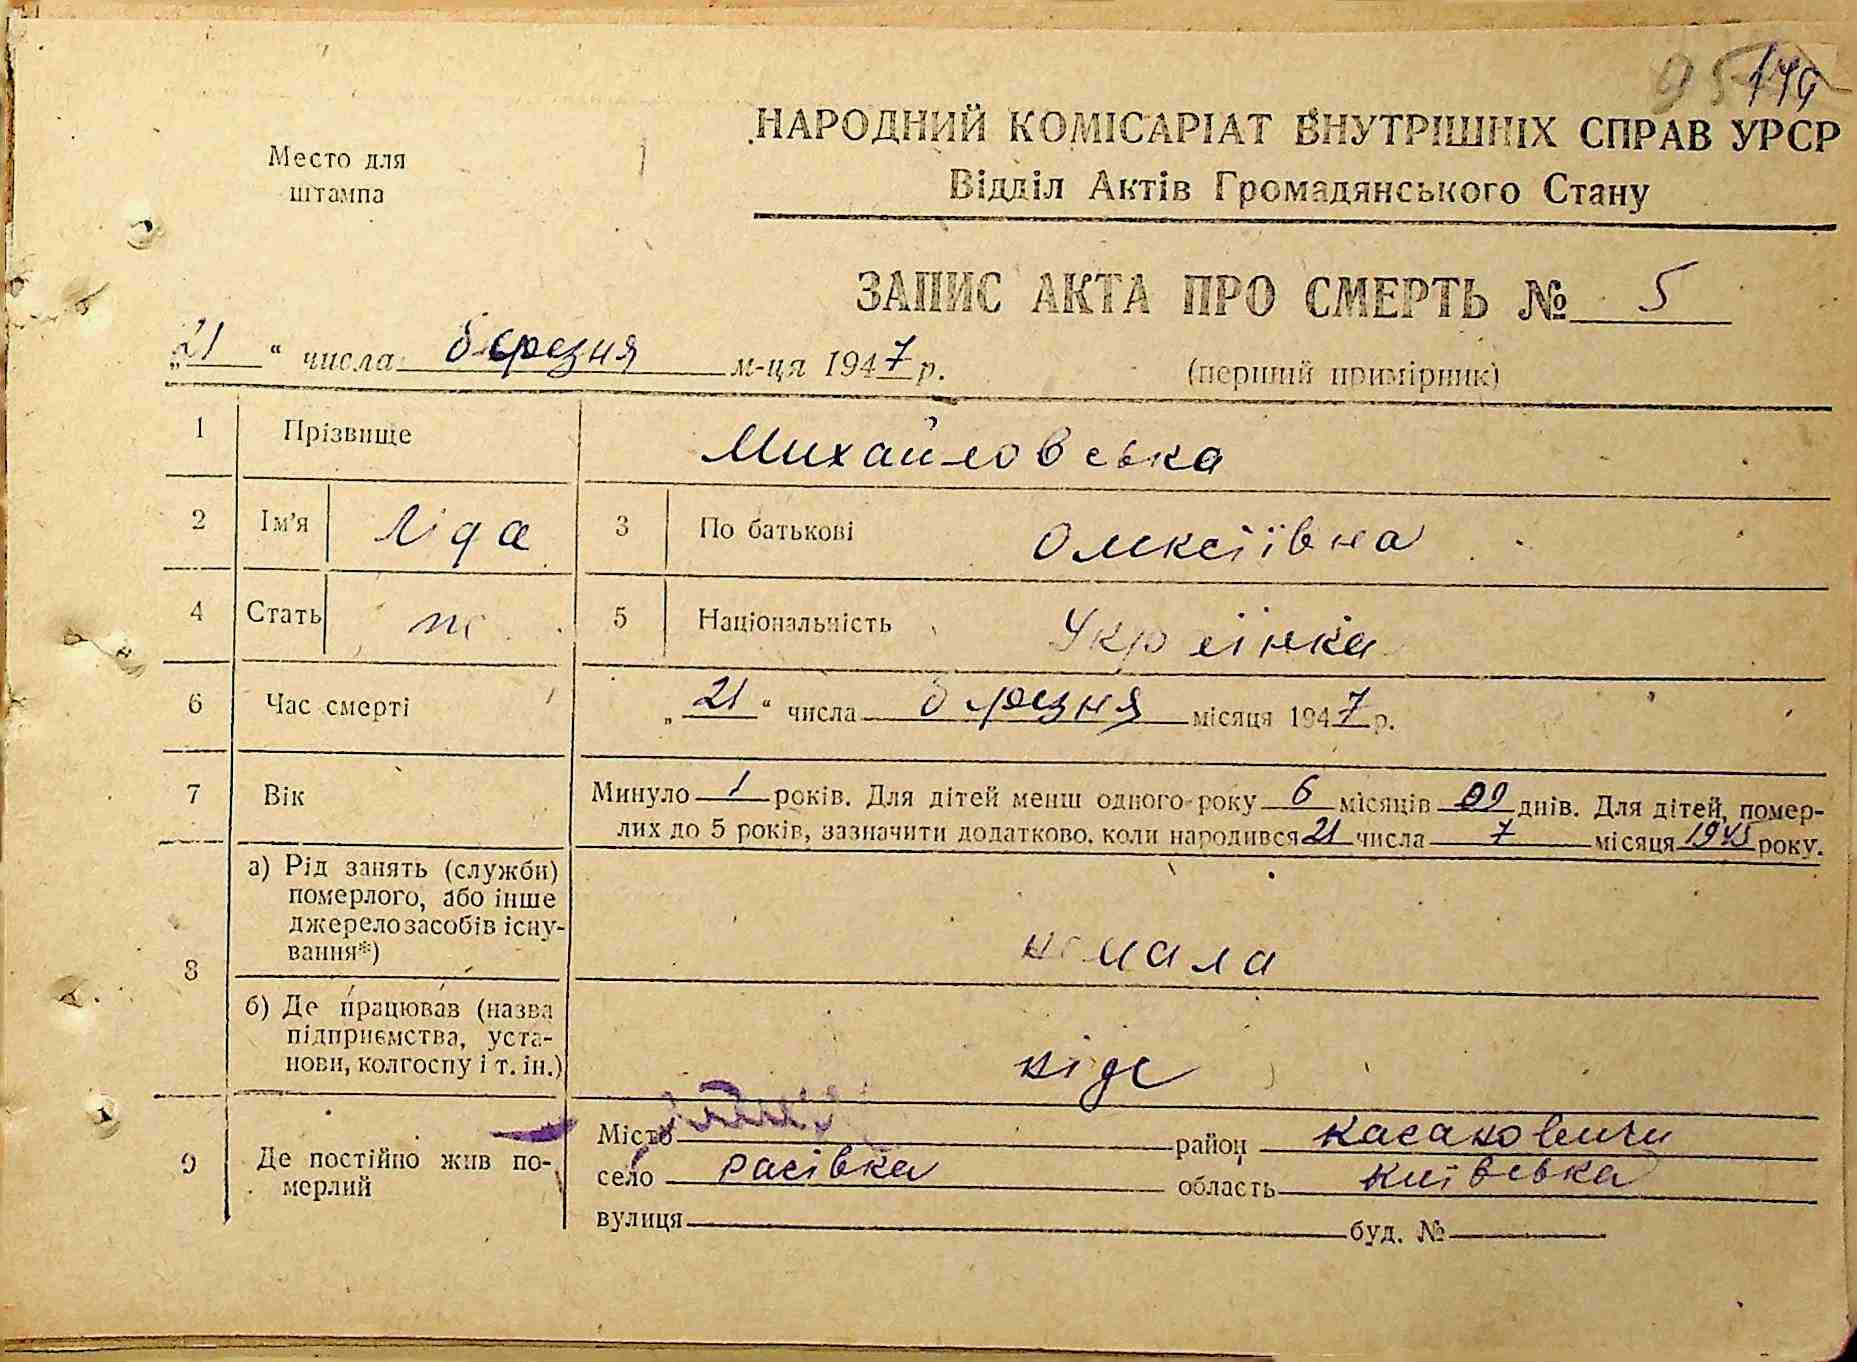 174
Место для
штампа
НАРОДНИЙ КОМІСАРІАТ ВНУТРІШНІХ СПРАВ УРСР
Відділ Актів Громадянського Стану
ЗАПИС АКТА ПРО СМЕРТЬ № 5
„21“ числа березня м-ця 1947 р.
(перший примірник)
1 Прізвище Михайловська
2 Ім'я Ліда 3 По батькові Олексіївна
4 Стать ж 5 Національність Українка
6 Час смерті „21“ числа березня місяця 1947 р.
7 Вік Минуло 1 років. Для дітей менш одного року 6 місяців 00 днів. Для дітей, помер-
лих до 5 років, зазначити додатково, коли народився 21 числа 7 місяця 1945 року.
8 а) Рід занять (служби)
померлого, або інше
джерело засобів існу-
вання*)
немала
б) Де працював (назва
підприємства, уста-
нови, колгоспу і т. ін.)
ніде
9 Де постійно жив по-
мерлий
Місто район Касановичи
село расівка область Київська
вулиця буд. №